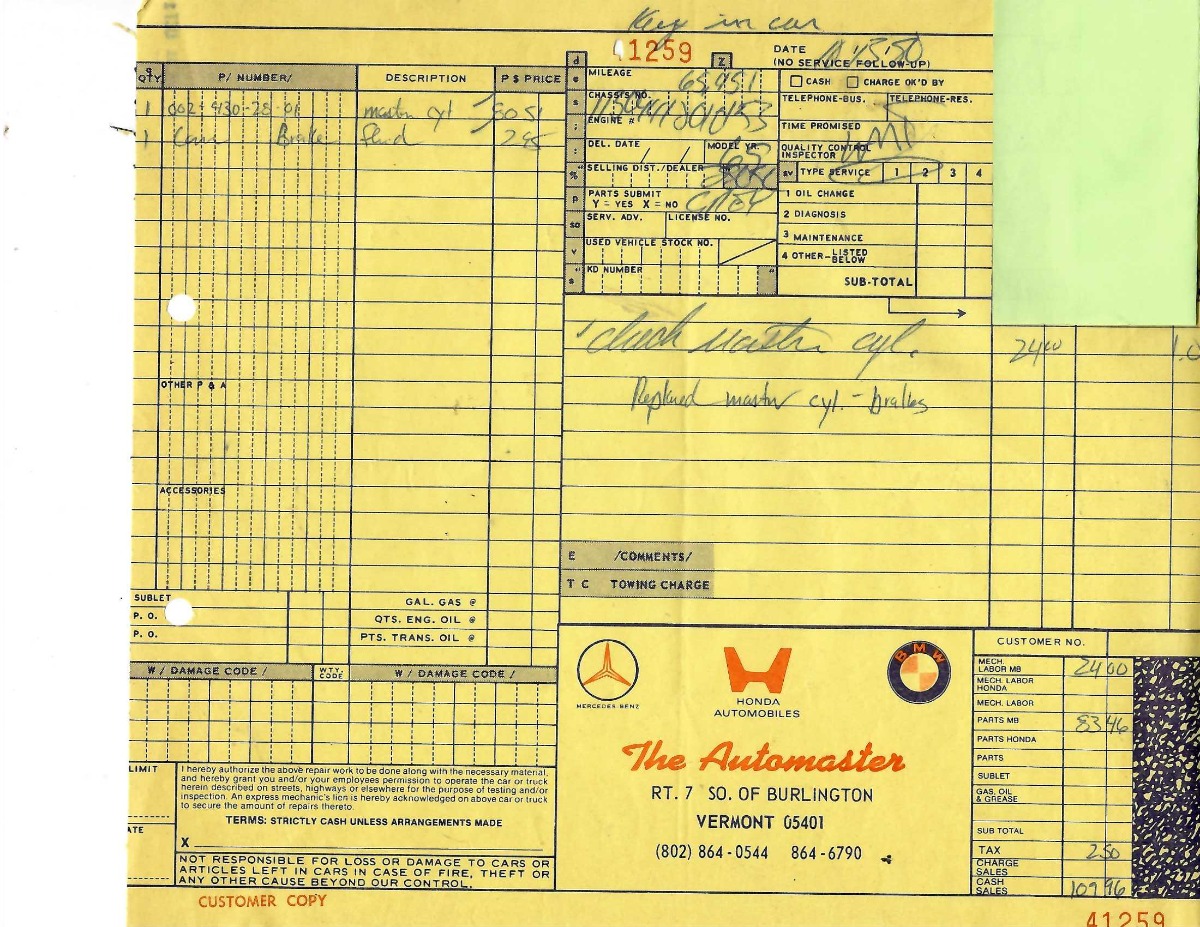 Key in car
41259 Z
DATE
(NO SERVICE FOLLOW-UP)
QTY P/ NUMBER/ DESCRIPTION P S PRICE
MILEAGE 65,451
CASH CHARGE OK'D BY
CHASSIS NO.
TELEPHONE-BUS. TELEPHONE-RES.
1 002-430-28-01 master cyl 80 51
ENGINE #
1 Can Brake fluid 2 95
TIME PROMISED
DEL. DATE / / MODEL YR. 65
QUALITY CONTROL
INSPECTOR
SELLING DIST./DEALER
SV TYPE SERVICE 1 2 3 4
PARTS SUBMIT
Y = YES X = NO GREY
1 OIL CHANGE
SERV. ADV. LICENSE NO.
2 DIAGNOSIS
USED VEHICLE STOCK NO.
3 MAINTENANCE
4 OTHER-LISTED
BELOW
KD NUMBER
SUB-TOTAL
check master cyl. 24 00 1.0
Replaced master cyl. - brakes
OTHER P & A
ACCESSORIES
E /COMMENTS/
T C TOWING CHARGE
SUBLET
P. O.
P. O.
GAL. GAS @
QTS. ENG. OIL @
PTS. TRANS. OIL @
W / DAMAGE CODE / WTY. CODE W / DAMAGE CODE /
MERCEDES-BENZ
HONDA
AUTOMOBILES
BMW
The Automaster
RT. 7 SO. OF BURLINGTON
VERMONT 05401
(802) 864-0544 864-6790
CUSTOMER NO.
MECH. LABOR MB 24 00
MECH. LABOR HONDA
MECH. LABOR
PARTS MB 83 46
PARTS HONDA
PARTS
SUBLET
GAS, OIL & GREASE
SUB TOTAL
TAX 2 50
CHARGE SALES
CASH SALES 109 96
LIMIT
I hereby authorize the above repair work to be done along with the necessary material,
and hereby grant you and/or your employees permission to operate the car or truck
herein described on streets, highways or elsewhere for the purpose of testing and/or
inspection. An express mechanic's lien is hereby acknowledged on above car or truck
to secure the amount of repairs thereto.
TERMS: STRICTLY CASH UNLESS ARRANGEMENTS MADE
X
NOT RESPONSIBLE FOR LOSS OR DAMAGE TO CARS OR
ARTICLES LEFT IN CARS IN CASE OF FIRE, THEFT OR
ANY OTHER CAUSE BEYOND OUR CONTROL.
CUSTOMER COPY
41259